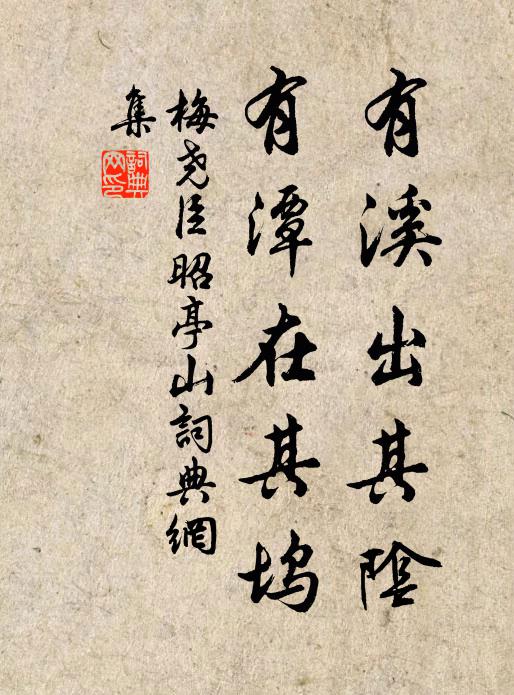 有溪出其陰
有潭在其塢
梅尧臣昭亭山詞典網
集
詞典網印